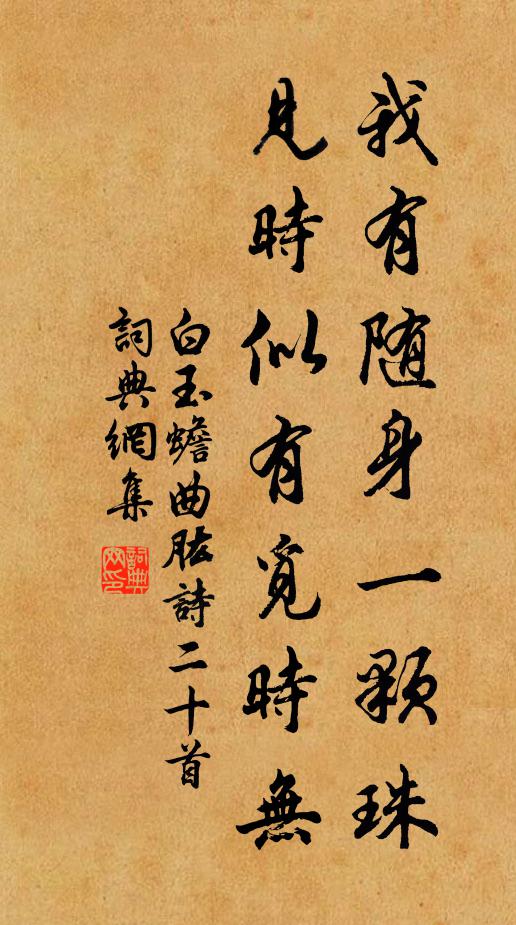 我有随身一颗珠
見時似有覓時無
白玉蟾曲肱詩二十首
詞典網集
詞典網印